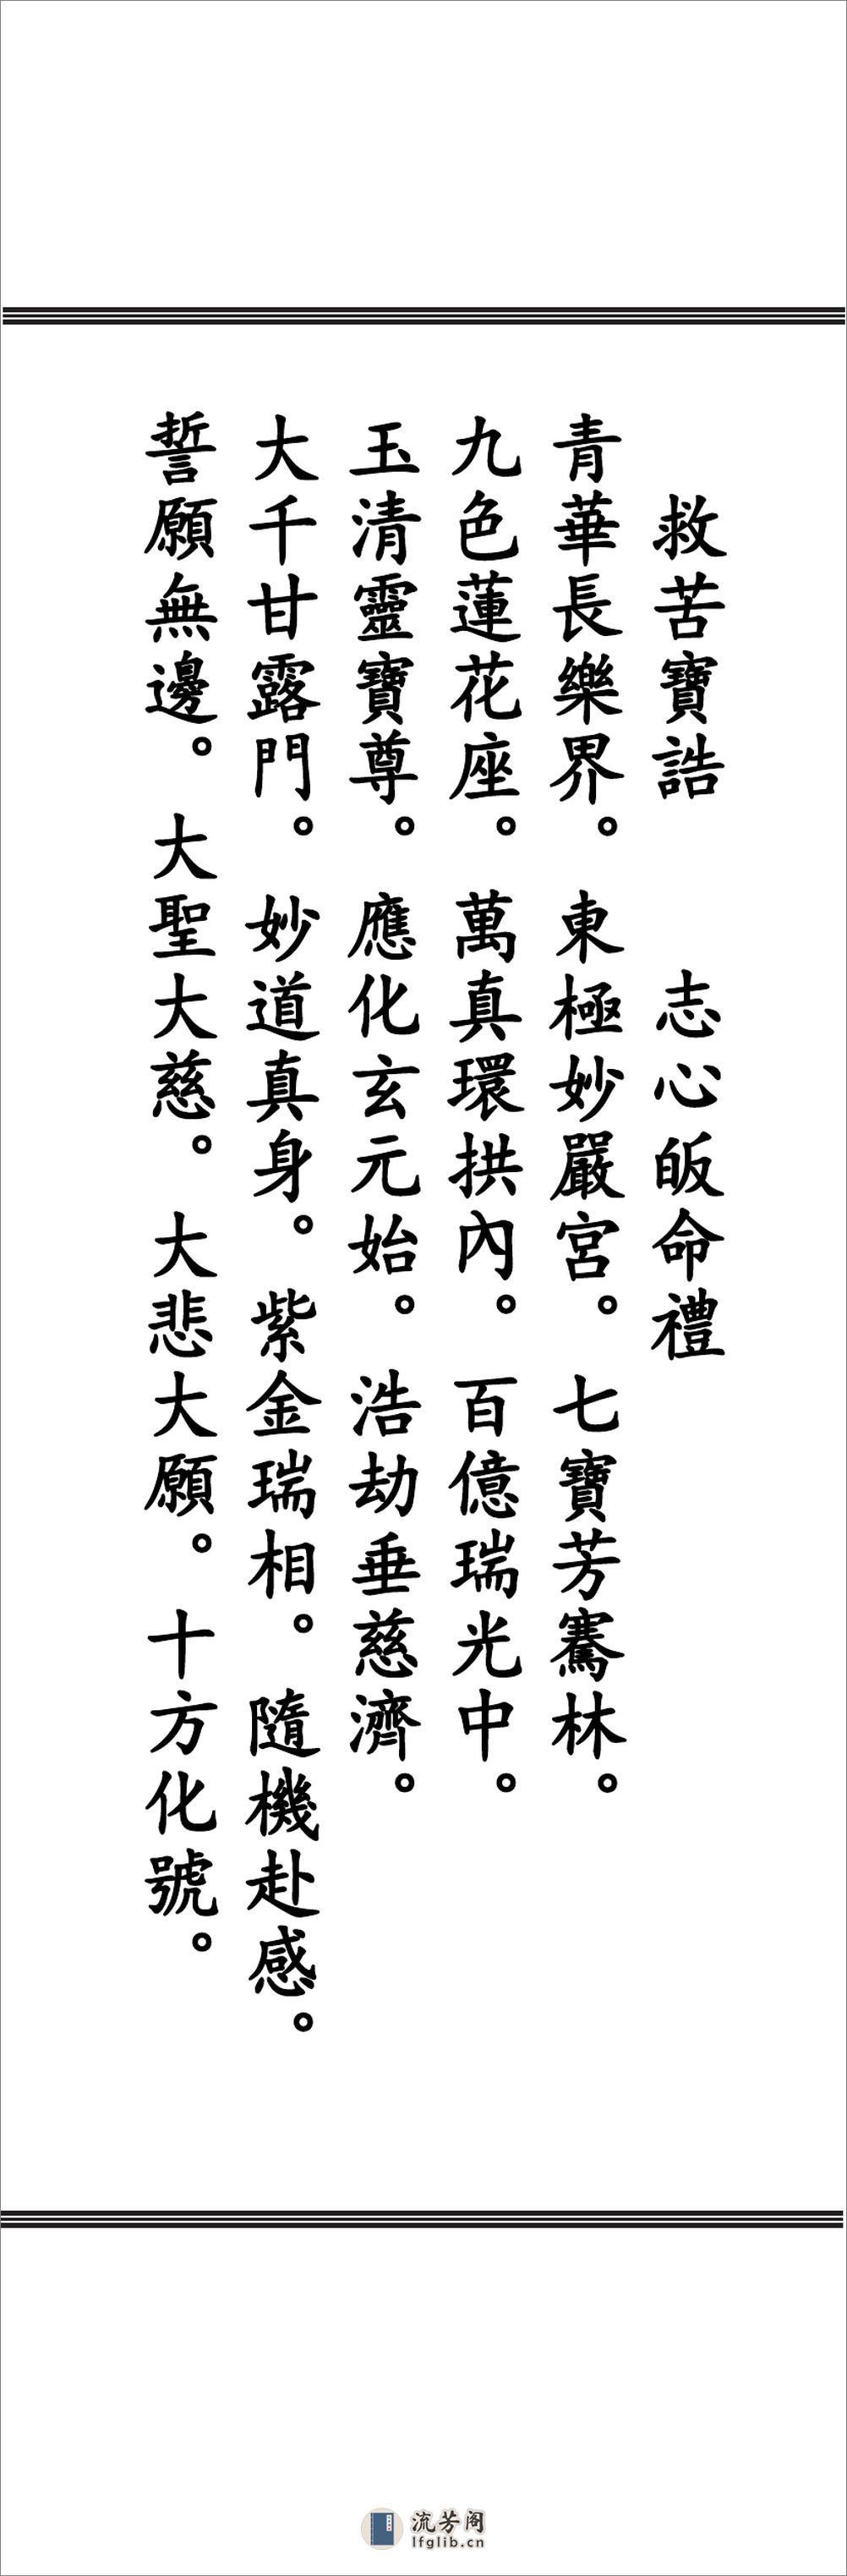 救苦寶誥　志心皈命禮
青華長樂界。　東極妙嚴宮。　七寶芳騫林。
九色蓮花座。　萬真環拱內。　百億瑞光中。
玉清靈寶尊。　應化玄元始。　浩劫垂慈濟。
大千甘露門。　妙道真身。　紫金瑞相。　隨機赴感。
誓願無邊。　大聖大慈。　大悲大願。　十方化號。
流芳阁
lfglib.cn